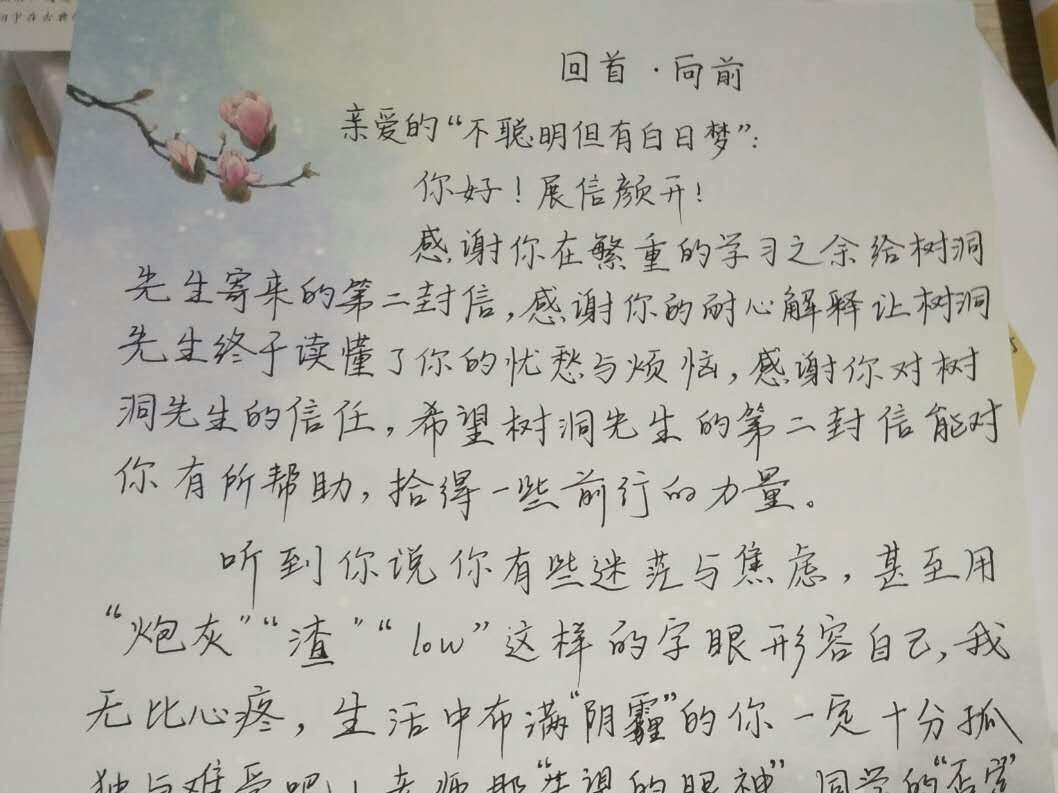 回首·向前
亲爱的“不聪明但有白日梦”：
你好！展信颜开！
感谢你在繁重的学习之余给树洞
先生寄来的第二封信，感谢你的耐心解释让树洞
先生终于读懂了你的忧愁与烦恼，感谢你对树
洞先生的信任，希望树洞先生的第二封信能对
你有所帮助，拾得一些前行的力量。
听到你说你有些迷茫与焦虑，甚至用
“炮灰”“渣”“low”这样的字眼形容自己，我
无比心疼，生活中布满“阴霾”的你一定十分孤
独与难受吧！老师那“失望的眼神”同学的“否定”